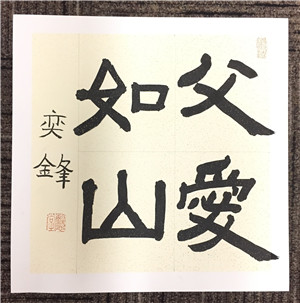 父愛
如山
奕鋒